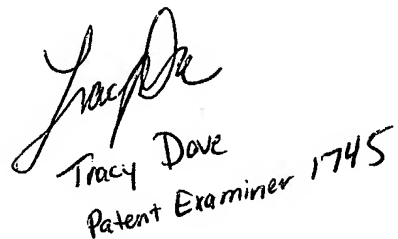 Tracy Dove
Tracy Dove
Patent Examiner 1745